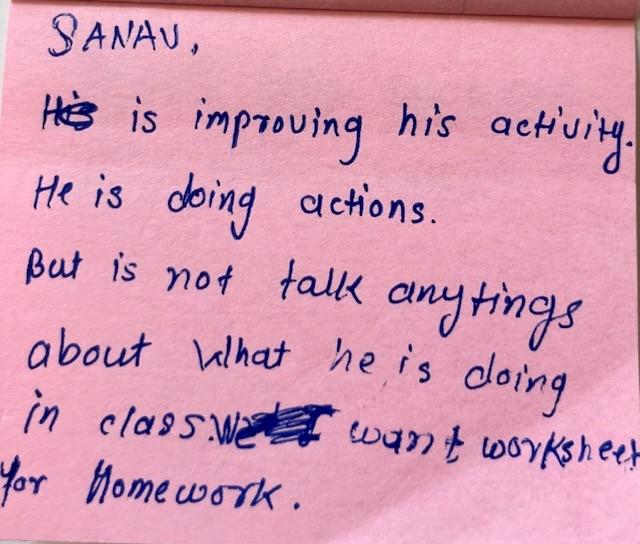 SANAV,
is improving his activity.
He is doing actions.
But is not talk anytings
about What he is doing
in class. I want worksheet
for Homework.